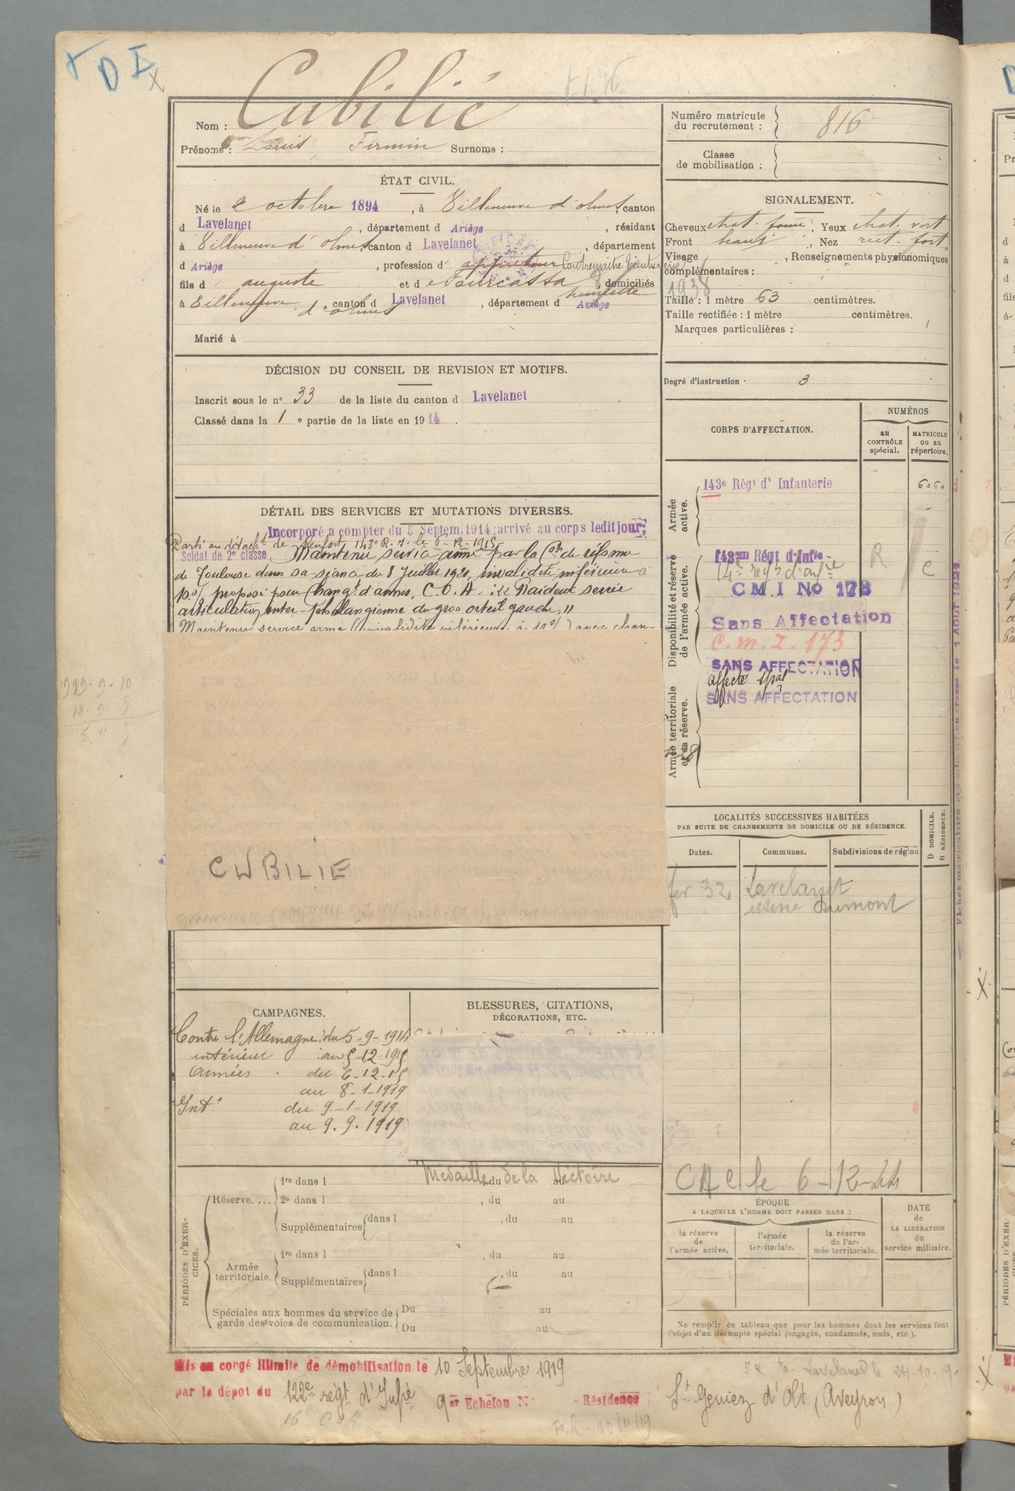 D
Cubilié
Nom :
Prénoms : Louis, Firmin Surnoms :
ÉTAT CIVIL.
Né le 2 octobre 1894, à Villeneuve d'olmes canton
d Lavelanet, département d Ariège, résidant
à Villeneuve d'olmes canton d Lavelanet, département
d Ariège, profession d' Contremaître
fils d auguste et d Fourcassa domiciliés
à Villeneuve d'olmes, canton d Lavelanet, département d Ariège
Marié à
DÉCISION DU CONSEIL DE REVISION ET MOTIFS.
Inscrit sous le n° 33 de la liste du canton d Lavelanet
Classé dans la 1 e partie de la liste en 1914.
DÉTAIL DES SERVICES ET MUTATIONS DIVERSES.
Incorporé a compter du 5 Septem. 1914; arrivé au corps ledit jour;
Soldat de 2e classe.
Parti au détacht de Renfort 143e R.I. le 6-12-1915
Maintenu service armé par la Con de réforme
de Toulouse dans sa séance du 8 Juillet 1920, invalidité inférieure à
10% proposé pour changt d'armes, C.O.A. Raideur serrée
articulation inter-phalangienne du gros orteil gauche"
Maintenu service armé (invalidité inférieure à 10%) avec chan-
CUBILIE
CAMPAGNES.
Contre l'Allemagne: du 5-9-1914
intérieur au 5-12-1915
Armées du 6-12-15
au 8-1-1919
Intr du 9-1-1919
au 9.9.1919
BLESSURES, CITATIONS,
DÉCORATIONS, ETC.
Médaille de la Victoire
PÉRIODES D'EXERCICES.
Réserve....
1re dans l , du au
2e dans l , du au
Supplémentaires dans l , du au
Armée territoriale.
1re dans l , du au
Supplémentaires dans l , du au
Spéciales aux hommes du service de
garde des voies de communication.
Du au
Du au
Mis en congé illimité de démobilisation le 10 Septembre 1919
par le dépôt du 122e régt d'Infie 9er Echelon N° Résidence St Geniez d'Olt (Aveyron)
Numéro matricule
du recrutement : 816
Classe
de mobilisation :
SIGNALEMENT.
Cheveux chat. foncé, Yeux chat. vert
Front haut, Nez rect. fort
Visage , Renseignements physionomiques
complémentaires :
1938
Taille : 1 mètre 63 centimètres.
Taille rectifiée : 1 mètre centimètres.
Marques particulières :
Degré d'instruction : 3
CORPS D'AFFECTATION.
NUMÉROS
au
CONTRÔLE
spécial.
MATRICULE
OU AU
répertoire.
Armée
active.
143e Régt d'Infanterie
6060
Disponibilité et réserve
de l'armée active.
143me Régt d'Infie
C.M.I No 173
R
C
Sans Affectation
C.M.I. 173
SANS AFFECTATION
affecté spal
SANS AFFECTATION
Armée territoriale
et sa réserve.
LOCALITÉS SUCCESSIVES HABITÉES
PAR SUITE DE CHANGEMENTS DE DOMICILE OU DE RÉSIDENCE.
Dates.
Communes.
Subdivisions de région
D DOMICILE.
R RÉSIDENCE.
fer 32 Lavelanet
usine Dumont
C A C le 6-12-44
ÉPOQUE
A LAQUELLE L'HOMME DOIT PASSER DANS :
la réserve
de
l'armée active.
l'armée
territoriale.
la réserve
de l'ar-
mée territoriale.
DATE
de
LA LIBÉRATION
du
service militaire.
Ne remplir ce tableau que pour les hommes dont les services font
l'objet d'un décompte spécial (engagés, condamnés, omis, etc.).